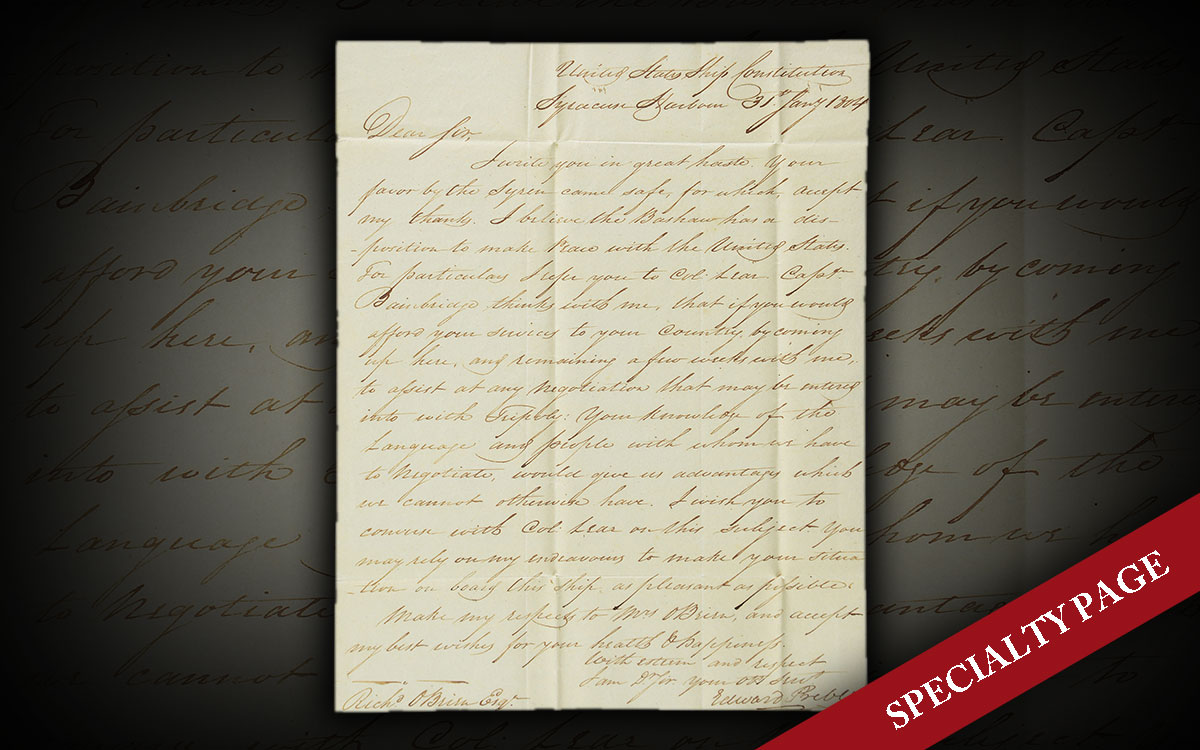 United States Ship Constitution
Syracuse Harbour 31st Jany 1804
Dear Sir,
I write you in great haste. Your
favor by the Syren came safe, for which, accept
my thanks. I believe the Bashaw has a dis-
-position to make Peace with the United States.
For particulars I refer you to Col: Lear. Capt.
Bainbridge thinks with me, that if you would
afford your services to your Country, by coming
up here, and remaining a few weeks with me,
to assist at any Negotiation that may be entered
into with Tripoly: Your knowledge of the
Language and people with whom we have
to Negotiate, would give us advantages which
we cannot otherwise have. I wish you to
converse with Col: Lear on this subject. You
may rely on my endeavours to make your situa
-tion on board this Ship, as pleasant as possible:
Make my respects to Mrs OBrien, and accept
my best wishes for your health & happiness.
With esteem and respect
I am Dr Sir your Obt Servt
Edward Preble
Richd OBrien Esqr.
SPECIALTY PAGE